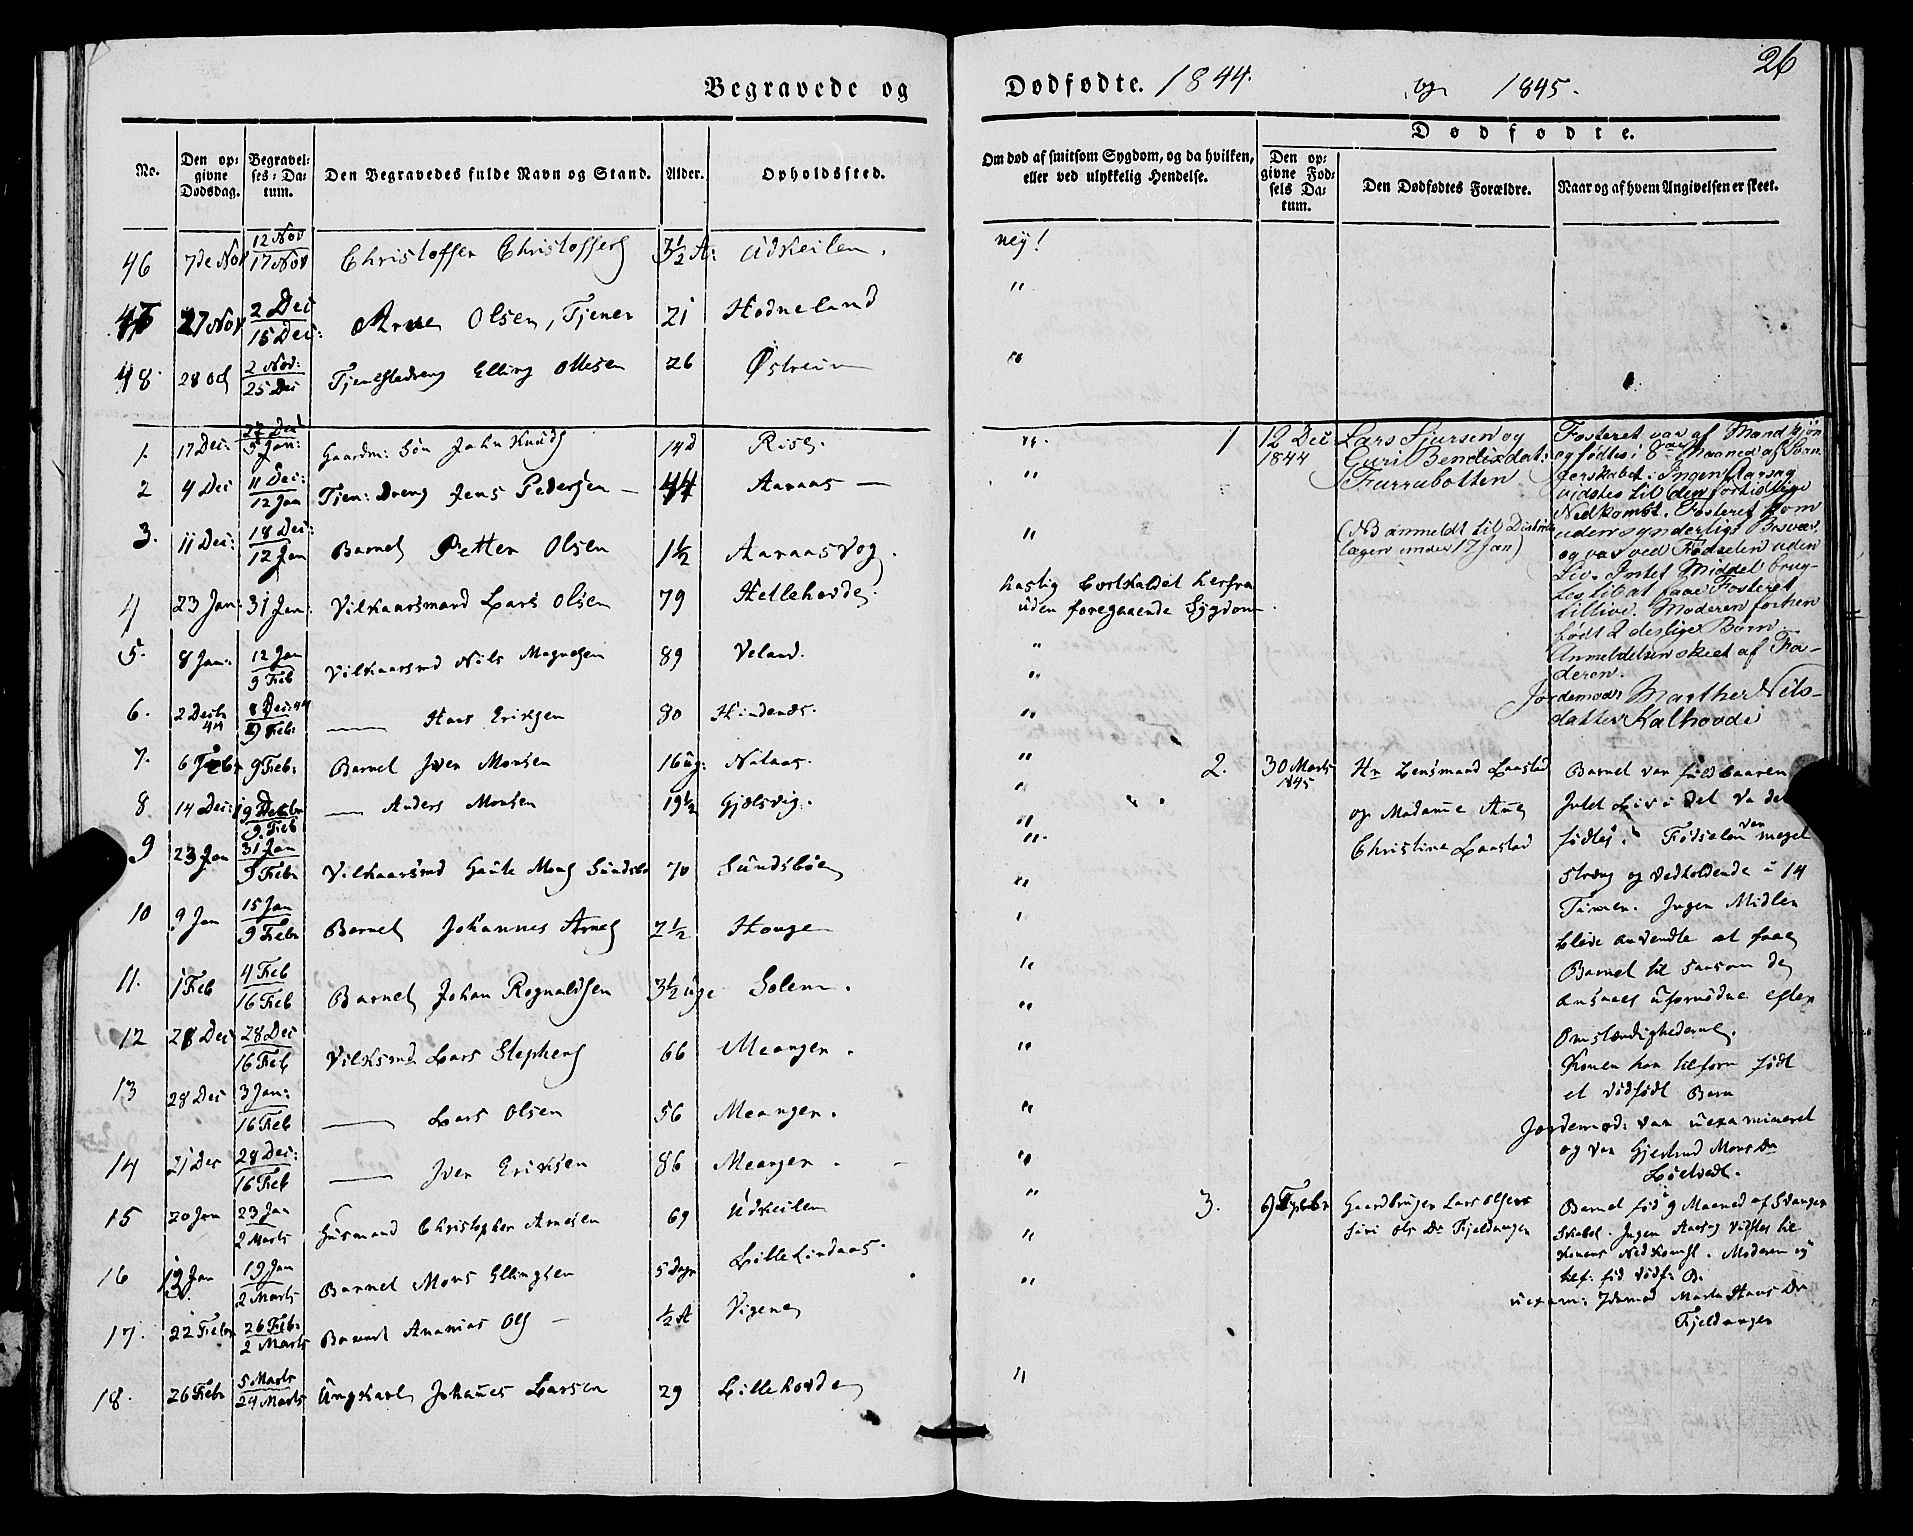 26
Begravede og Dødfødte. 1844. og 1845.
No.
Den opgivne Dødsdag.
Begravelses-Datum.
Den Begravedes fulde Navn og Stand.
Alder.
Opholdssted.
Om død af smitsom Sygdom, og da hvilken, eller ved ulykkelig Hendelse.
Dødfødte.
Den opgivne Fødsels Datum.
Den Dødfødtes Forældre.
Naar og af hvem Angivelsen er skeet.
46 7de Nov 12 Nov 17 Nov Christoffer Christoffers 3½ A: Udkeilen. ney!
47 27 Nov 2 Dec 15 Dec: Olsen, Tjener 21 Hodneland "
48 28 Oct 2 Nov: 25 Dec Tjenestedreng Elling Ollesen 26 Østreim "
1. 17 Dec: 27 Dec 5 Jan: Gaardm: Søn John Knuds 14 d Rise. "
2 4 Dec 11 Dec: 12 Jan Tjen: Dreng Jens Pedersen — 44 Aaraas — "
3. 11 Dec: 18 Dec: 12 Jan Barnet Petter Olsen 1½ Aaraasvog. "
4 23 Jan: 31 Jan: Vilkaarsmand Lars Olsen 79 Hellehovde. hastig bortkaldet herfra
uden foregaaende Sygdom.
5. 8 Jan: 12 Jan 9 Feb Vilkaarsmd Nils Magnesen 89 Veland. "
6. 2 Decbr 44 8 Dec: 44 9 Feb: — Hans Eriksen 80 Hindenes. "
7. 6 Febr 9 Feb: Barnet Iver Monsen 16 ug: Nataas. "
8 14 Dec: 9 Feb — Anders Monsen 19½ Gjelsvig. "
9 23 Jan 31 Jan 9 Febr Vilkaarsmd Gaute Mons Sundsbø 70 Sundsbøe "
10 9 Jan 15 Jan 9 Febr Barnet Johannes Arnes 2½ Houge "
11. 1 Feb 4 Feb 16 Feb Barnet Johan Rognaldsen 3½ uge Solem. "
12 28 Dec 28 Dec 16 Feb Vilksmd Lars Stephens 66 Meanger. "
13 28 Dec 3 Jan: 16 Feb — Lars Olsen 56 Meanger. "
14 21 Dec 28 Dec: 16 Feb — Iver Eriksen 86 Meanger. "
15 20 Jan 23 Jan 2 Marts Huusmand Christopher Arnesen 69 Udkeilen "
16 13 Jan 19 Jan 2 Marts Barnet Mons Ellingsen 5 Dage Lille Lindaas. "
17. 22 Febr 26 Feb: 2 Marts Barnet Ananias Ols — ½ A Vigene "
18. 26 Febr 5 Marts 24 Marts Ungkarl Johannes Larsen 29 Lillehovde "
1 12 Dec 1844
Lars Sjursen og
Guri Bendixdat:
Furrebotten
(NB anmeldt til Districts
lægen under 17 Jan)
Fosteret var af Mandkjøn
og fødtes i 8de Maaned af Svan
gerskabet. Ingen Aarsag
vidstes til den fortidlige
Nedkomst. Fosteret kom
uden synderligt Besvær
og var ved Fødselen uden
Liv. Intet Middel brug-
tes til at faae Fosteret
tillive. Moderen forhen
født 2 deslige Børn.
Anmeldelsen skeet af Fa-
deren.
Jordemod: Marthe Nils-
datter Kalhovde
2. 30 Marts 1845
Hr Lensmand Laastad
og Madame Ane
Christine Laastad
Barnet var fuldbaaren
Intet Liv i det da det
fødtes. Fødselen var meget
streng og vedholdende i 14
Timer. Ingen Midler
bleve anvendte at faae
Barnet til saasom de
ansaaes ufornødne efter
Omstændighederne.
Konen har tilforn født
et dødfødt Barn
Jordemod: var uexamineret
og var Gjertrud Mons Dr
3. 9 Febr
Gaardbruger Lars Olsens
Siri Ols Dr Fjeldanger
Barnet fød i 9 Maaned af Svanger
skabet. Ingen Aarsag vidstes til
Konens Nedkomst. Moderen ej
tilf: fød dødf: B.
uexam: Jdemod Marta Hans Dr
Fjeldanger